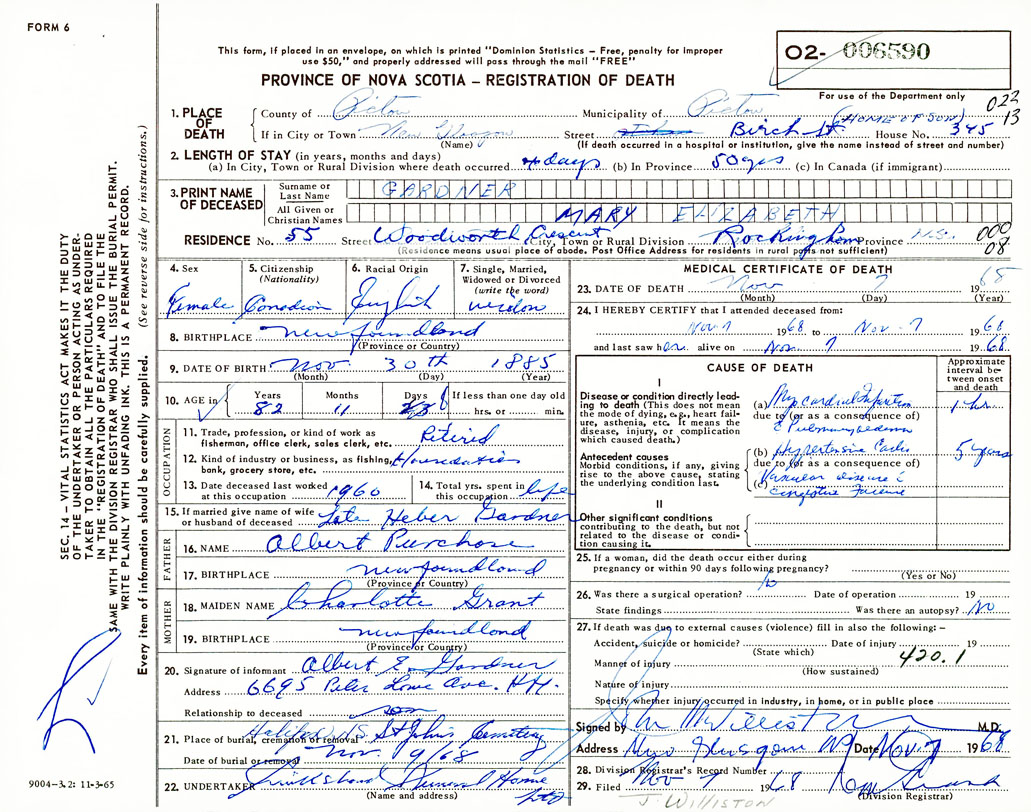 FORM 6
This form, if placed in an envelope, on which is printed "Dominion Statistics – Free, penalty for improper
use $50," and properly addressed will pass through the mail "FREE"
PROVINCE OF NOVA SCOTIA – REGISTRATION OF DEATH
O2- 006590
For use of the Department only
022
13
1. PLACE OF DEATH
County of Pictou Municipality of Pictou
(HOME OF SON)
If in City or Town New Glasgow Street Birch St House No. 345
(Name) (If death occurred in a hospital or institution, give the name instead of street and number)
2. LENGTH OF STAY (in years, months and days)
(a) In City, Town or Rural Division where death occurred 4 days (b) In Province 50 yrs (c) In Canada (if immigrant)
3. PRINT NAME OF DECEASED
Surname or Last Name GARDNER
All Given or Christian Names MARY ELIZABETH
RESIDENCE No. 55 Street Woodworth Crescent City, Town or Rural Division Rockingham Province N.S.
000
08
(Residence means usual place of abode. Post Office Address for residents in rural parts not sufficient)
4. Sex
Female
5. Citizenship
(Nationality)
Canadian
6. Racial Origin
English
7. Single, Married,
Widowed or Divorced
(write the word)
widow
8. BIRTHPLACE newfoundland
(Province or Country)
9. DATE OF BIRTH Nov. 30th 1885
(Month) (Day) (Year)
10. AGE in
Years Months Days If less than one day old
82 11 hrs. or min.
OCCUPATION
11. Trade, profession, or kind of work as
fisherman, office clerk, sales clerk, etc. Retired
12. Kind of industry or business, as fishing,
bank, grocery store, etc.
13. Date deceased last worked
at this occupation 1960
14. Total yrs. spent in
this occupation life
15. If married give name of wife
or husband of deceased Late Heber Gardner
FATHER
16. NAME Albert Purchase
17. BIRTHPLACE newfoundland
(Province or Country)
MOTHER
18. MAIDEN NAME Charlotte Grant
19. BIRTHPLACE newfoundland
(Province or Country)
20. Signature of informant Albert E. Gardner
Address 6695 Peter Lowe Ave. Hfx.
Relationship to deceased son
21. Place of burial, cremation or removal Halifax NS St Johns Cemetery
Date of burial or removal Nov 9/68
22. UNDERTAKER Cruikshank Funeral Home
(Name and address) Ltd
MEDICAL CERTIFICATE OF DEATH
23. DATE OF DEATH Nov 7 1968
(Month) (Day) (Year)
24. I HEREBY CERTIFY that I attended deceased from:
Nov 7 1968 to Nov. 7 1968
and last saw her alive on Nov. 7 1968
CAUSE OF DEATH
Approximate
interval be-
tween onset
and death
I
Disease or condition directly lead-
ing to death (This does not mean
the mode of dying, e.g., heart fail-
ure, asthenia, etc. It means the
disease, injury, or complication
which caused death.)
(a) Myocardial Infarction 1 hr
due to (or as a consequence of)
c Pulmonary edema
Antecedent causes
Morbid conditions, if any, giving
rise to the above cause, stating
the underlying condition last.
(b) Hypertensive Cardio 5 years
due to (or as a consequence of)
(c) Vascular disease c
Congestive Failure
II
Other significant conditions
contributing to the death, but not
related to the disease or condi-
tion causing it.
25. If a woman, did the death occur either during
pregnancy or within 90 days following pregnancy?
(Yes or No)
26. Was there a surgical operation? No Date of operation 19
State findings Was there an autopsy? No
27. If death was due to external causes (violence) fill in also the following: –
Accident, suicide or homicide? Date of injury 19
(State which)
420.1
Manner of injury
(How sustained)
Nature of injury
Specify whether injury occurred in industry, in home, or in public place
Signed by M.D.
Address New Glasgow NS Date Nov 7 1968
28. Division Registrar's Record Number
29. Filed Nov 7 1968
(Division Registrar)
J. WILLISTON
SEC. 14 – VITAL STATISTICS ACT MAKES IT THE DUTY
OF THE UNDERTAKER OR PERSON ACTING AS UNDER-
TAKER TO OBTAIN ALL THE PARTICULARS REQUIRED
IN THE "REGISTRATION OF DEATH" AND TO FILE THE
SAME WITH THE DIVISION REGISTRAR WHO SHALL ISSUE THE BURIAL PERMIT.
WRITE PLAINLY WITH UNFADING INK. THIS IS A PERMANENT RECORD.
Every item of information should be carefully supplied. (See reverse side for instructions.)
9004-3.2: 11-3-65